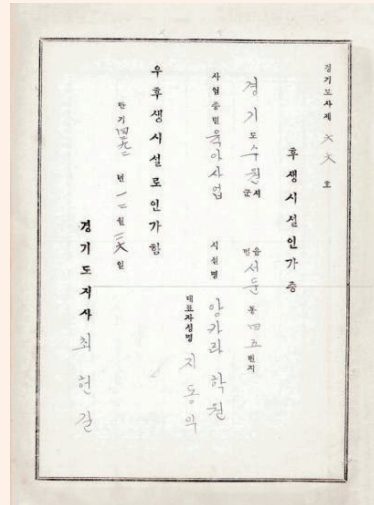 경기도사제 六六 호
후생시설인가증
경기 도 수원 시군 읍면 서둔 동 四五 번지
사업종별 육아사업 시설명 앙카라 학원
대표자성명 지동익
우후생시설로인가함
단기 년 월 일
경기도지사 최헌길